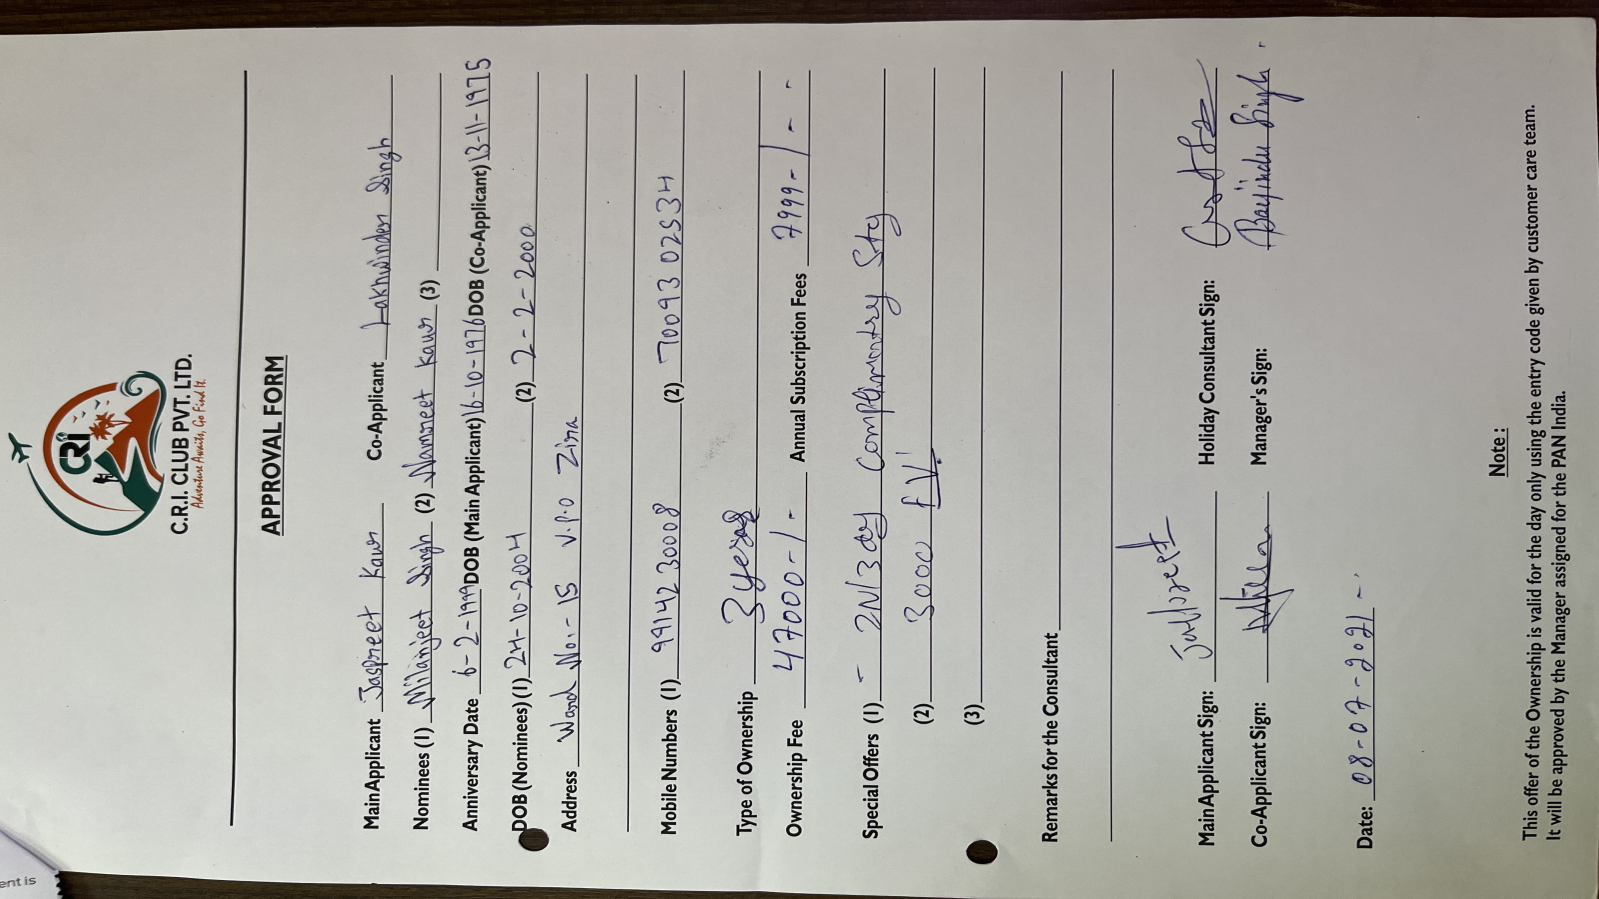 CRI
C.R.I. CLUB PVT. LTD.
Adventure Awaits, Go Find It.
APPROVAL FORM
Main Applicant Jaspreet Kaur Co-Applicant Lakhwinder Singh
Nominees (1) Milanjeet Singh (2) Namreet Kaur (3)
Anniversary Date 6-2-1999 DOB (Main Applicant) 16-10-1976 DOB (Co-Applicant) 13-11-1975
DOB (Nominees) (1) 24-10-2004 (2) 2-2-2000
Address Ward No.-15 V.P.O Zira
Mobile Numbers (1) 99142 30008 (2) 70093 02534
Type of Ownership 3 years
Ownership Fee 47000-/- Annual Subscription Fees 7999-/-
Special Offers (1) - 2N/3day Complimentry Sty
(2) 3000 F.V.
(3)
Remarks for the Consultant
Main Applicant Sign: Holiday Consultant Sign:
Co-Applicant Sign: Manager's Sign: Singh
Date: 08-07-2021-
Note :
This offer of the Ownership is valid for the day only using the entry code given by customer care team.
It will be approved by the Manager assigned for the PAN India.
ent is